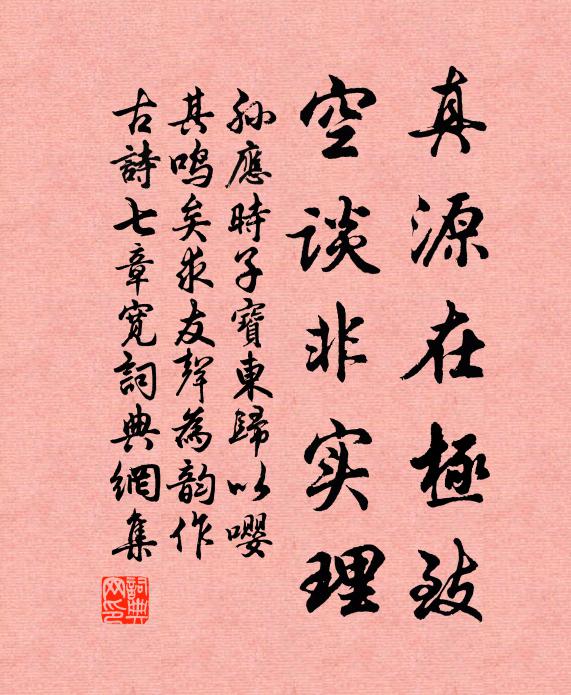 真源在極致
空谈非实理
孙應時子寶東歸以嘤
其鸣矣求友聲為韵作
古詩七章寛詞典網集
詞典
网印